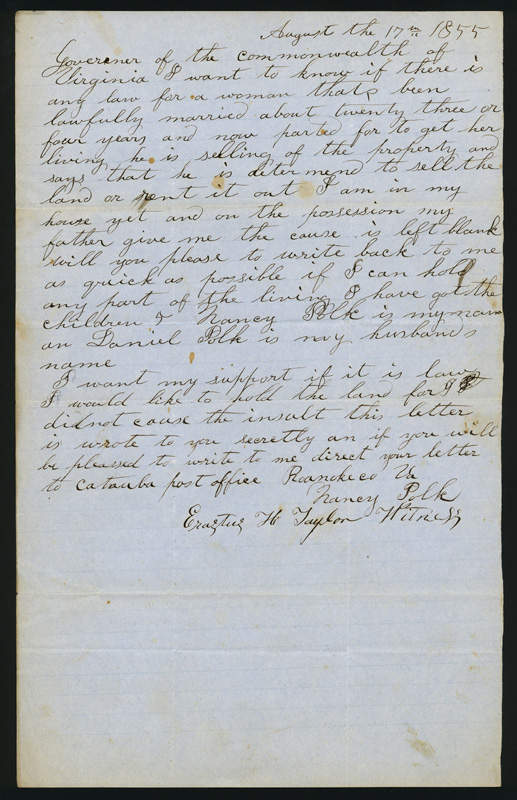 August the 17th 1855
Governer of the commonwealth of
Virginia I want to know if there is
any law for a woman thats been
lawfully married about twenty three or
four years and now parted for to get her
living he is selling of the property and
says that he is determend to sell the
land or rent it out I am in my
house yet and on the possession my
father give me the cause is left blank
will you please to write back to me
as quick as possible if I can hold
any part of the living I have got the
children & Nancy Polk is my nam
an Daniel Polk is my husbands
name
I want my support if it is law
I would like to hold the land for I
didnot cause the insult this letter
is wrote to you secretly an if you will
be pleased to write to me direct your letter
to catauba post office Roanoke co Va
Nancy Polk
Erastus H Taylor Witness